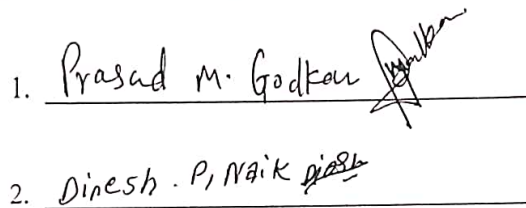 1. Prasad M. Godkar
2. Dinesh . P, Naik Dinesh